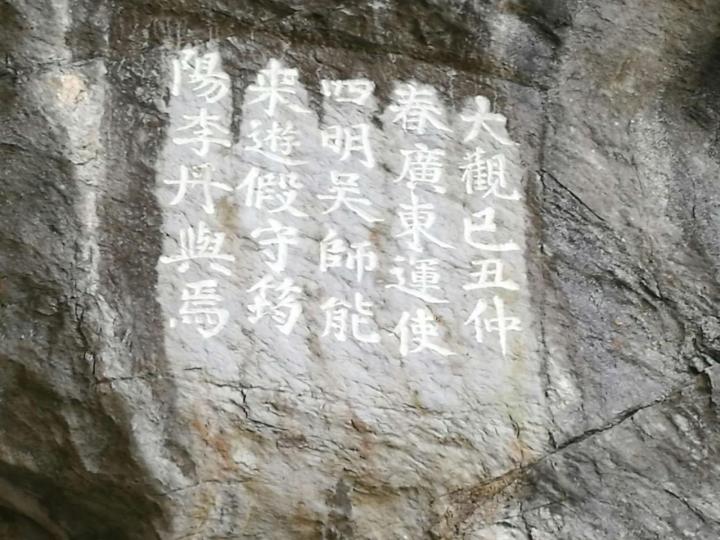 大觀己丑仲
春廣東運使
四明吴師能
来遊假守筠
陽李丹與焉